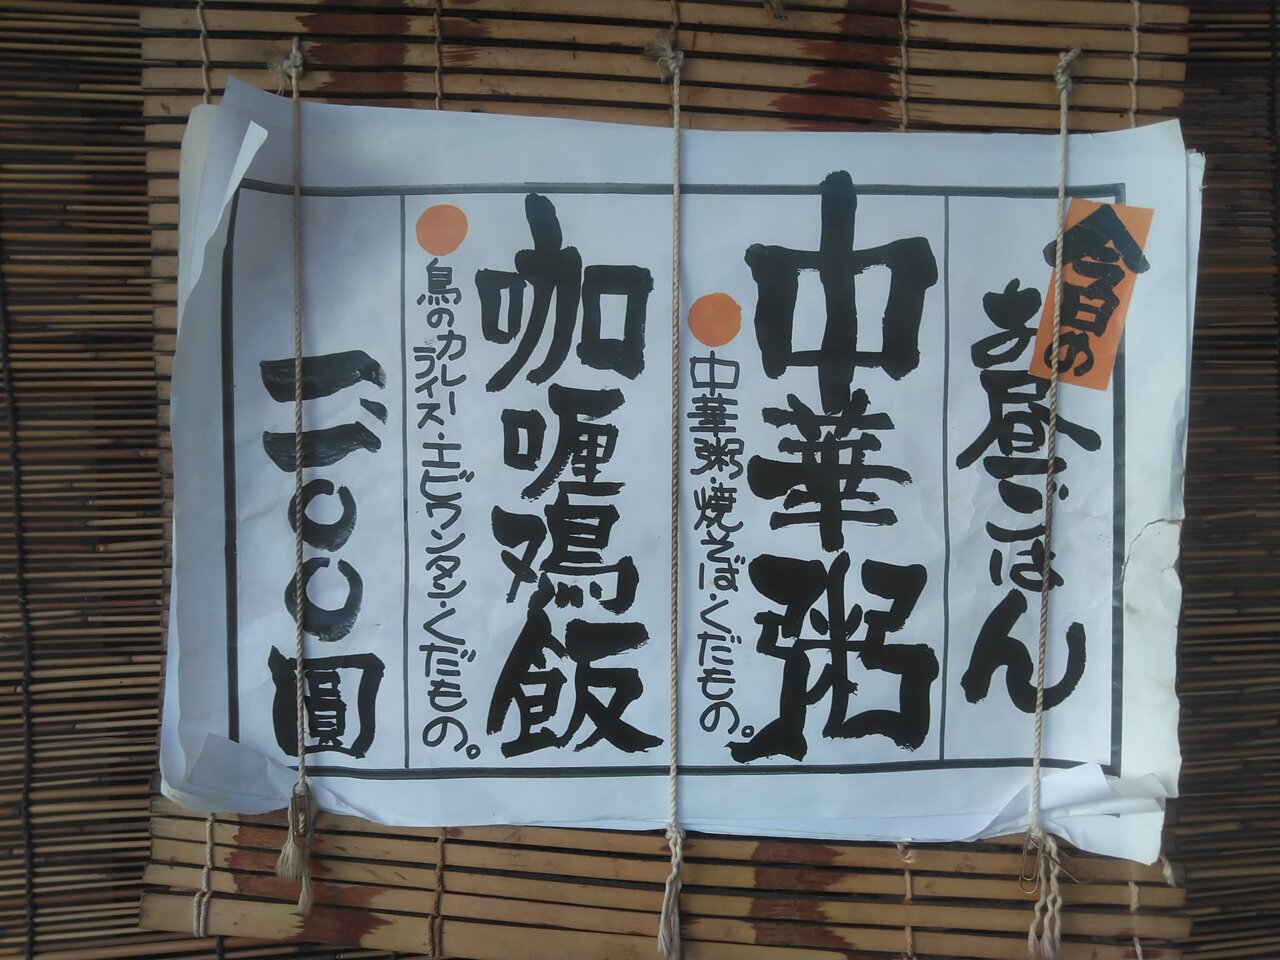 今日の
お昼ごはん
中華粥
中華粥・焼そば・くだもの。
咖喱鶏飯
鳥のカレー
ライス・エビワンタン・くだもの。
二、二〇〇圓